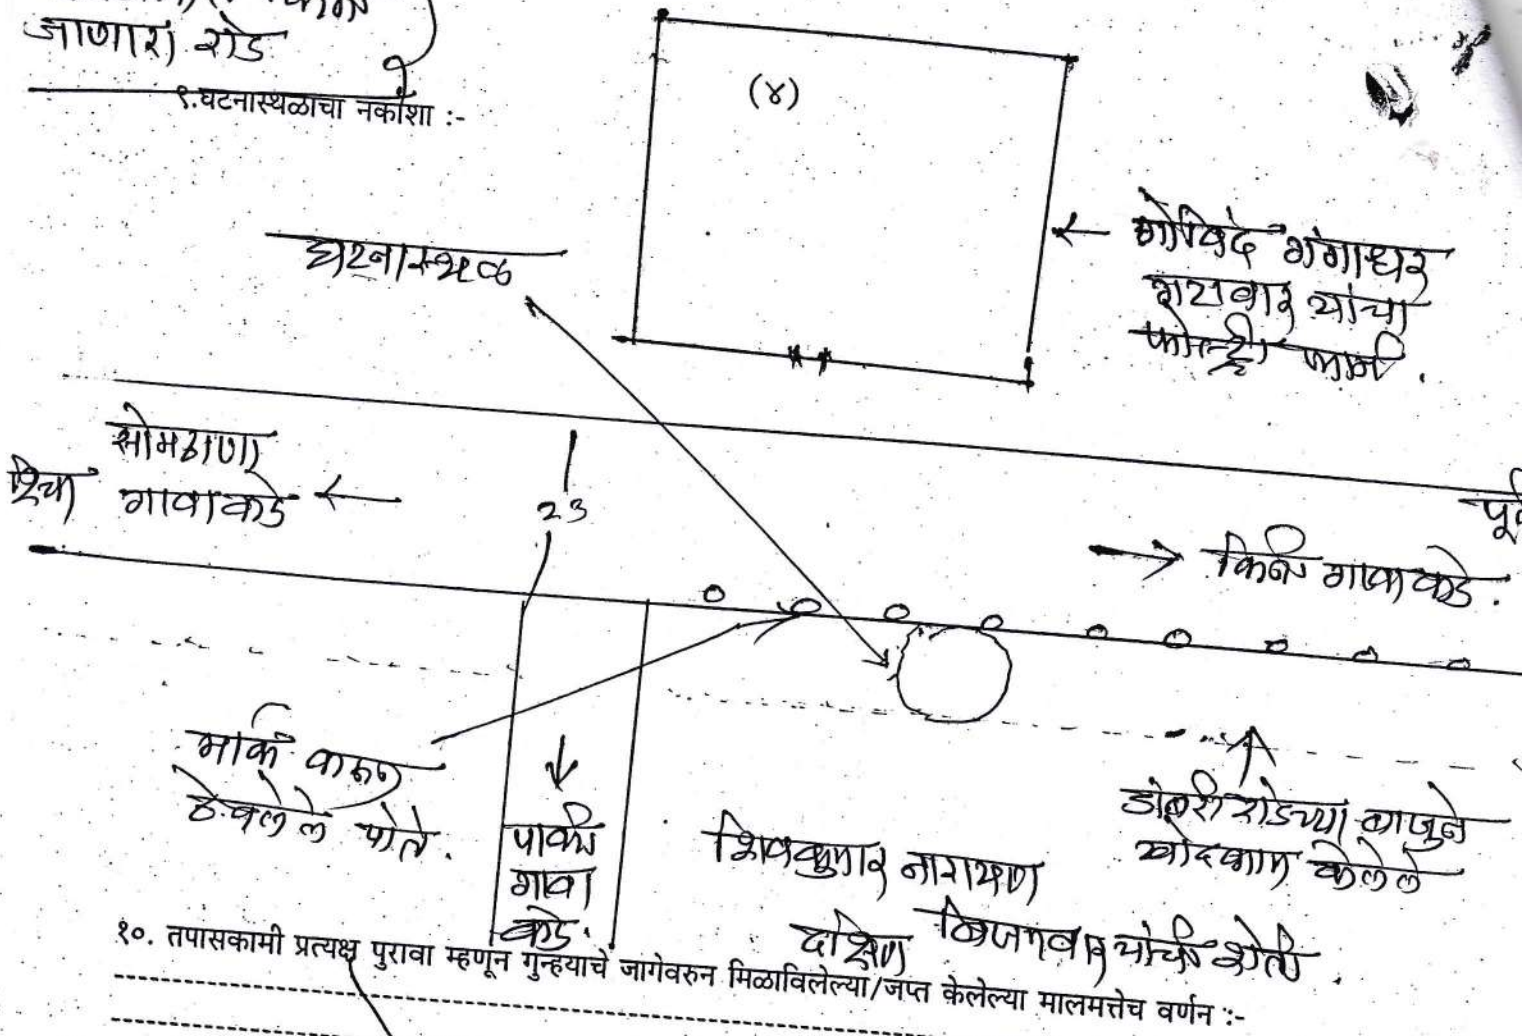 जाणारा रोड
९.घटनास्थळाचा नकाशा :-
(४)
घटनास्थळ
← गोविंद गंगाधर
यांचा
पोल्ट्री फार्म.
सोमठाणा
गावाकडे ←
23
→ किनी गावाकडे.
मार्क करून
ठेवलेले पोते.
↓
पाकी
गावा
कडे.
शिवकुमार नारायण
यांची शेती.
दक्षिण
रोडच्या बाजुने
खोदकाम केलेले
१०. तपासकामी प्रत्यक्ष पुरावा म्हणून गुन्हयाचे जागेवरुन मिळाविलेल्या/जप्त केलेल्या मालमत्तेच वर्णन :-